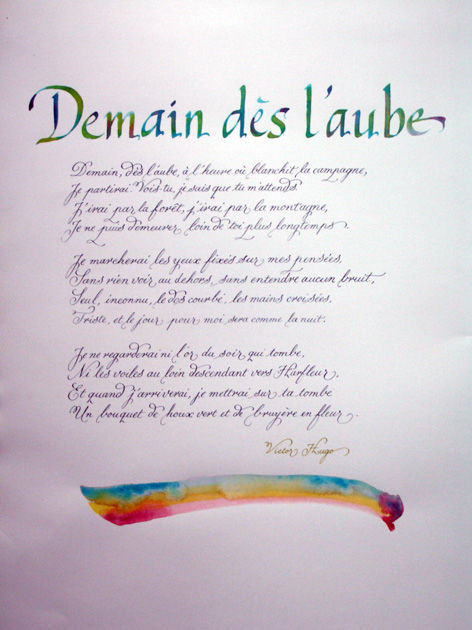 Demain dès l'aube
Demain, dès l'aube, à l'heure où blanchit la campagne,
Je partirai. Vois-tu, je sais que tu m'attends.
J'irai par la forêt, j'irai par la montagne,
Je ne puis demeurer loin de toi plus longtemps.
Je marcherai les yeux fixés sur mes pensées,
Sans rien voir au dehors, sans entendre aucun bruit,
Seul, inconnu, le dos courbé, les mains croisées,
Triste, et le jour pour moi sera comme la nuit.
Je ne regarderai ni l'or du soir qui tombe,
Ni les voiles au loin descendant vers Harfleur,
Et quand j'arriverai, je mettrai sur ta tombe
Un bouquet de houx vert et de bruyère en fleur.
Victor Hugo